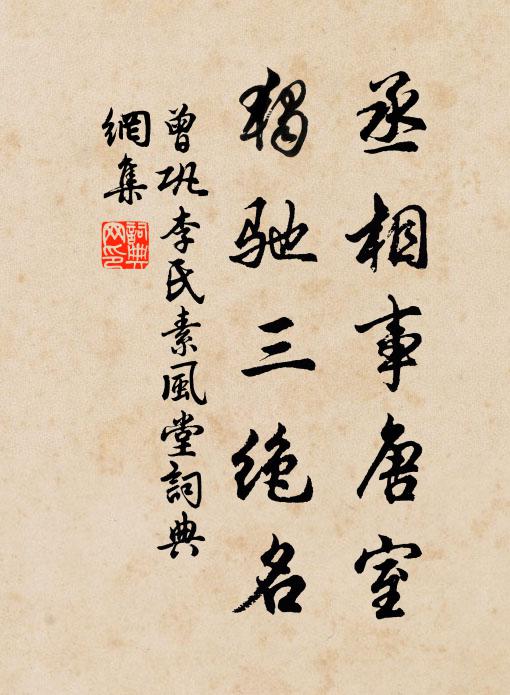 丞相事唐室
獨馳三絶名
曾巩李氏素風堂詞典
網集
詞典
网印